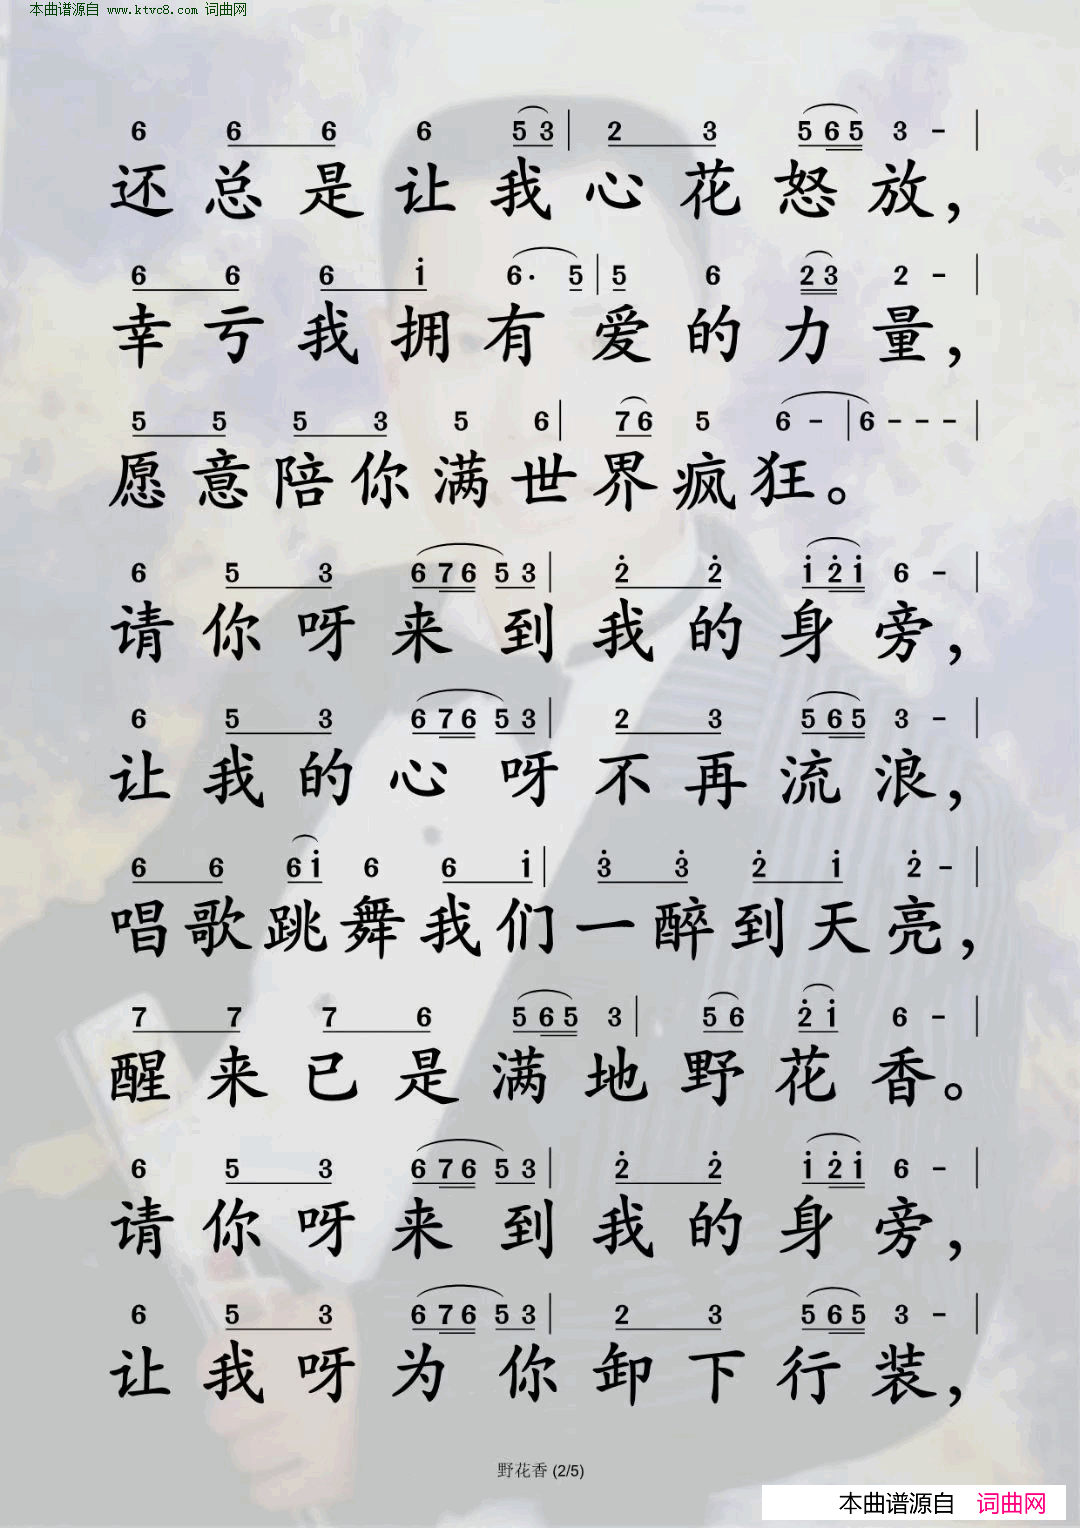 本曲谱源自 www.ktvc8.com 词曲网
6 6 6 6 5 3 | 2 3 5 6 5 3 - |
还总是让我心花怒放，
6 6 6 i 6· 5 | 5 6 2 3 2 - |
幸亏我拥有爱的力量，
5 5 5 3 5 6 | 7 6 5 6 - | 6 - - - |
愿意陪你满世界疯狂。
6 5 3 6 7 6 5 3 | 2̇ 2̇ i 2̇ i 6 - |
请你呀来到我的身旁，
6 5 3 6 7 6 5 3 | 2 3 5 6 5 3 - |
让我的心呀不再流浪，
6 6 6 i 6 6 i | 3̇ 3̇ 2̇ i 2̇ - |
唱歌跳舞我们一醉到天亮，
7 7 7 6 5 6 5 3 | 5 6 2̇ i 6 - |
醒来已是满地野花香。
6 5 3 6 7 6 5 3 | 2̇ 2̇ i 2̇ i 6 - |
请你呀来到我的身旁，
6 5 3 6 7 6 5 3 | 2 3 5 6 5 3 - |
让我呀为你卸下行装，
野花香 (2/5)
本曲谱源自 词曲网